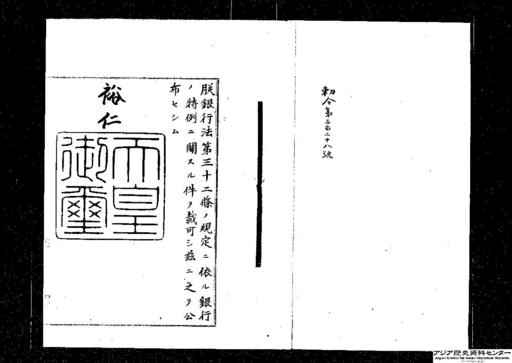 勅令第三百二十八號
朕銀行法第三十二條ノ規定ニ依ル銀行
ノ特例ニ關スル件ヲ裁可シ茲ニ之ヲ公
布セシム
裕仁
天皇
御璽
アジア歴史資料センター
Japan Center for Asian Historical Records